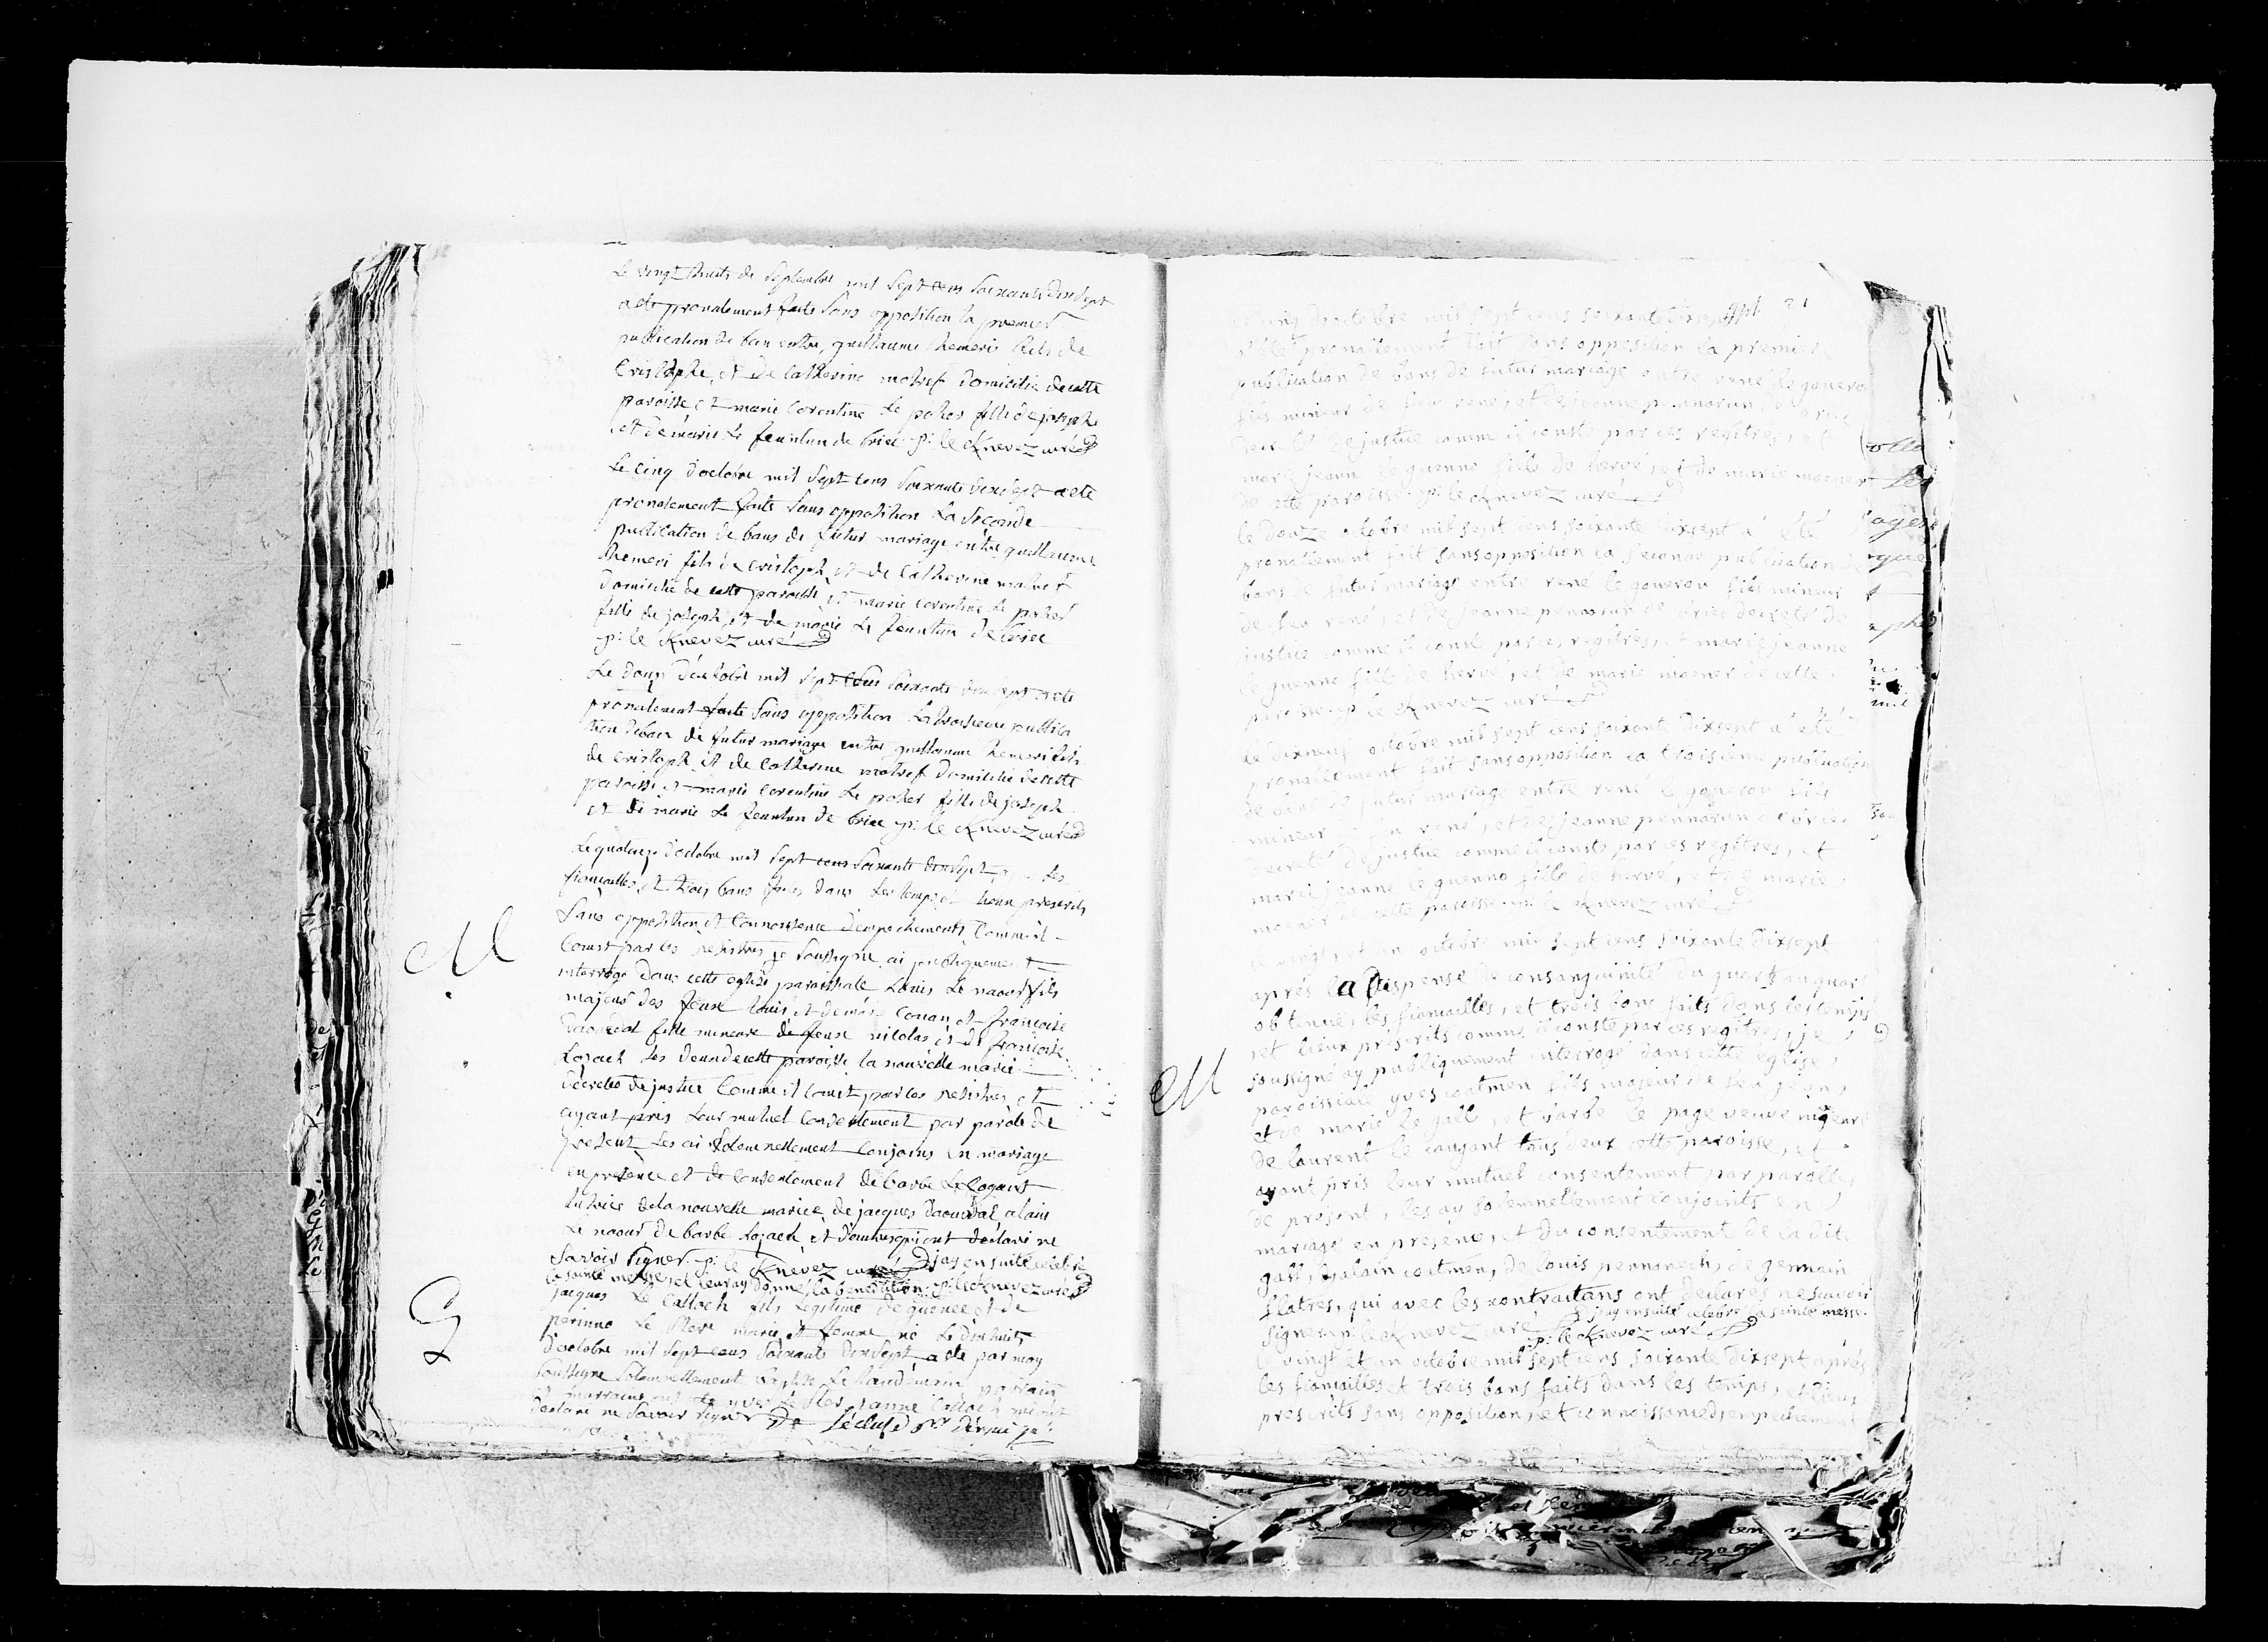 Le vingt huits de Septembre mil Sept cens Soixante dix Sept
a ete pronalement faite Sans opposition la premier
publication de ban entre, guillaume hemeri fils de
Cristophe, et De Catherine motref domicilie de cette
paroisse et marie Corentine Le poher fille de joseph
et de marie Le feuntun de briec p: le Knevez curé
Le cinq d'octobre mil Sept cens Soixante dixsept a ete
pronalement faite Sans opposition La Seconde
publication de bans de futur mariage entre guillaume
hemeri fils de Cristoph et de Catherine motref
domicilié de cette paroisse et marie Corentine Le poher
fille de joseph, et de marie Le feuntun de briec
p: le Knevez curé
Le douze d'octobre mil Sept Cens Soixante dix Sept a ete
pronalement faite Sans opposition La troisieme publica
tion de ban de futur mariage entre guillaume hemeri fils
de Cristoph et de Catherine motref domicilié de cette
paroisse et marie Corentine Le poher fille de joseph
et de marie Le feuntun de briec p: le Knevez curé
Le quatorze d'octobre mil Sept cens Soixante dixsept, les
fiançailles, et trois bans faits dans les temps et lieux prescrits
Sans opposition et Connoissence d'empechements Comme il
Const par les resistres je Soussigne ai publiquement
interrogé dans cette eglise paroissiale Louis Le naour fils
majeur des feux Louis et de marie Conan et françoise
daoudal fille mineure de feux nicolas et de françoise
Lozach les deux de cette paroisse la nouvelle marié
décretés de justice Comme il Const par les resistres, et
ayant pris Leur mutuel Consentement par parole de
present Les ai Solemnellement Conjoins en mariage
en présence et de Consentement de barbe Le Cogant
tutrice de la nouvelle mariee, de jacques daoudal, alain
Le naour, de barbe Lozach et d'autres qui ont déclaré ne
Savoir Signer. p: le Knevez curé j'ay ensuite célébré
la sainte messe, et leur ay donné la bénédiction p: le Knevez curé
jacques Le Calloch fils Legitime de guenec et de
perinne Le Mari et femme né Le dix huit
d'octobre mil Sept cens Soixante dix Sept a ete par moy
Soussigne Solemnellement baptisé Le Landemain parrain
et marraine ont ete yves Le anne Calloch qui ont
declaré ne Savoir Signer De Lécluse
M
G
cinq d'octobre mil sept cens soixante dixsept 21
été pronallement fait sans opposition la premiere
publication de bans de futur mariage entre rené le goueron
fils mineur de feu rené, et de jeanne pennarun de briec
decreté de justice comme il conste par ces regitres et
marie jeanne le guenno fille de hervé, et de marie moener
de cette paroisse. p: le Knevez curé
le douze octobre mil sept cens soixante dixsept a été
pronallement fait sans opposition la seconde publication de
bans de futur mariage entre rené le goueron fils mineur
de feu rené, et de jeanne pennarun de briec decreté de
justice comme il conste par ces regitres, et marie jeanne
le guenno fille de hervé, et de marie moener de cette
paroisse. p: le Knevez curé
le dixneuf octobre mil sept cens soixante dixsept a été
pronallement fait sans opposition la troisieme publication
de bans de futur mariage entre rené le goueron fils
mineur de feu rené, et de jeanne pennarun de briec
decreté de justice comme il conste par ces regitres, et
marie jeanne le guenno fille de hervé, et de marie
moener de cette paroisse. p: le Knevez curé
le vingt et un octobre mil sept cens soixante dixsept
après la dispense de consanguinité du quart au quart
obtenue, les fiançailles, et trois bans faits dans les temps
et lieux préscrits comme il conste par ces regitres, je
soussigné ay publiquement interrogé dans cette église
paroissiale yves coatmen fils majeur de feu jean
et de marie le gall, et barbe le page veuve majeure
de laurent le caugant tous deux cette paroisse, et
ayant pris leur mutuel consentement par parolle
de présent, les ay solemnellement conjoints en
mariage en présence, et du consentement de la dite
gall, d'alain coatmen, de louis pennanech, de germain
flatres, qui avec les contractans ont déclarés ne savoir
signer. p: le Knevez curé j'ay ensuite célébré la sainte messe.
p: le Knevez curé
le vingt et un octobre mil sept cens soixante dixsept après
les fiançailles et trois bans faits dans les temps, et lieux
prescrits sans opposition, et connoissance d'empechement
M